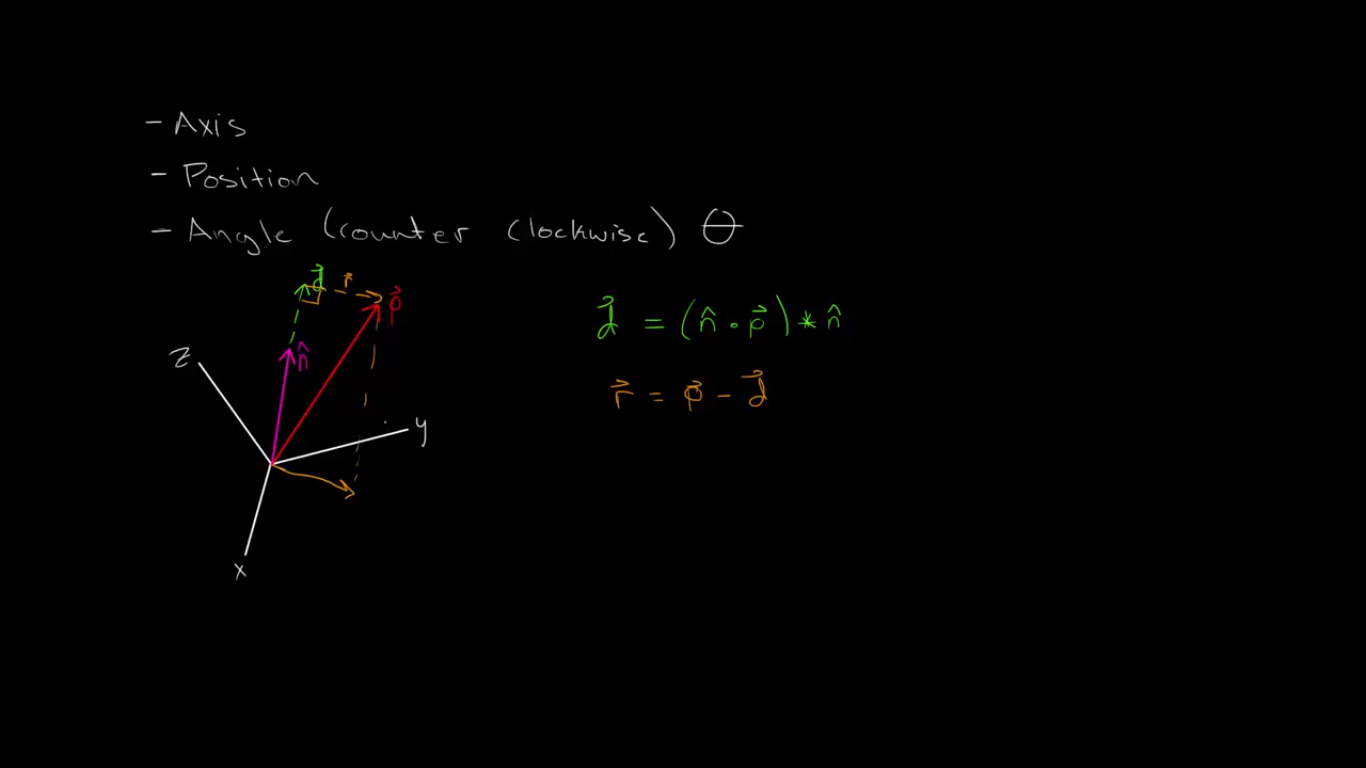 - Axis
- Position
- Angle (counter clockwise) θ
d⃗ r⃗ p⃗
d⃗ = (n̂ • p⃗) * n̂
z n̂
r⃗ = p⃗ - d⃗
y
x